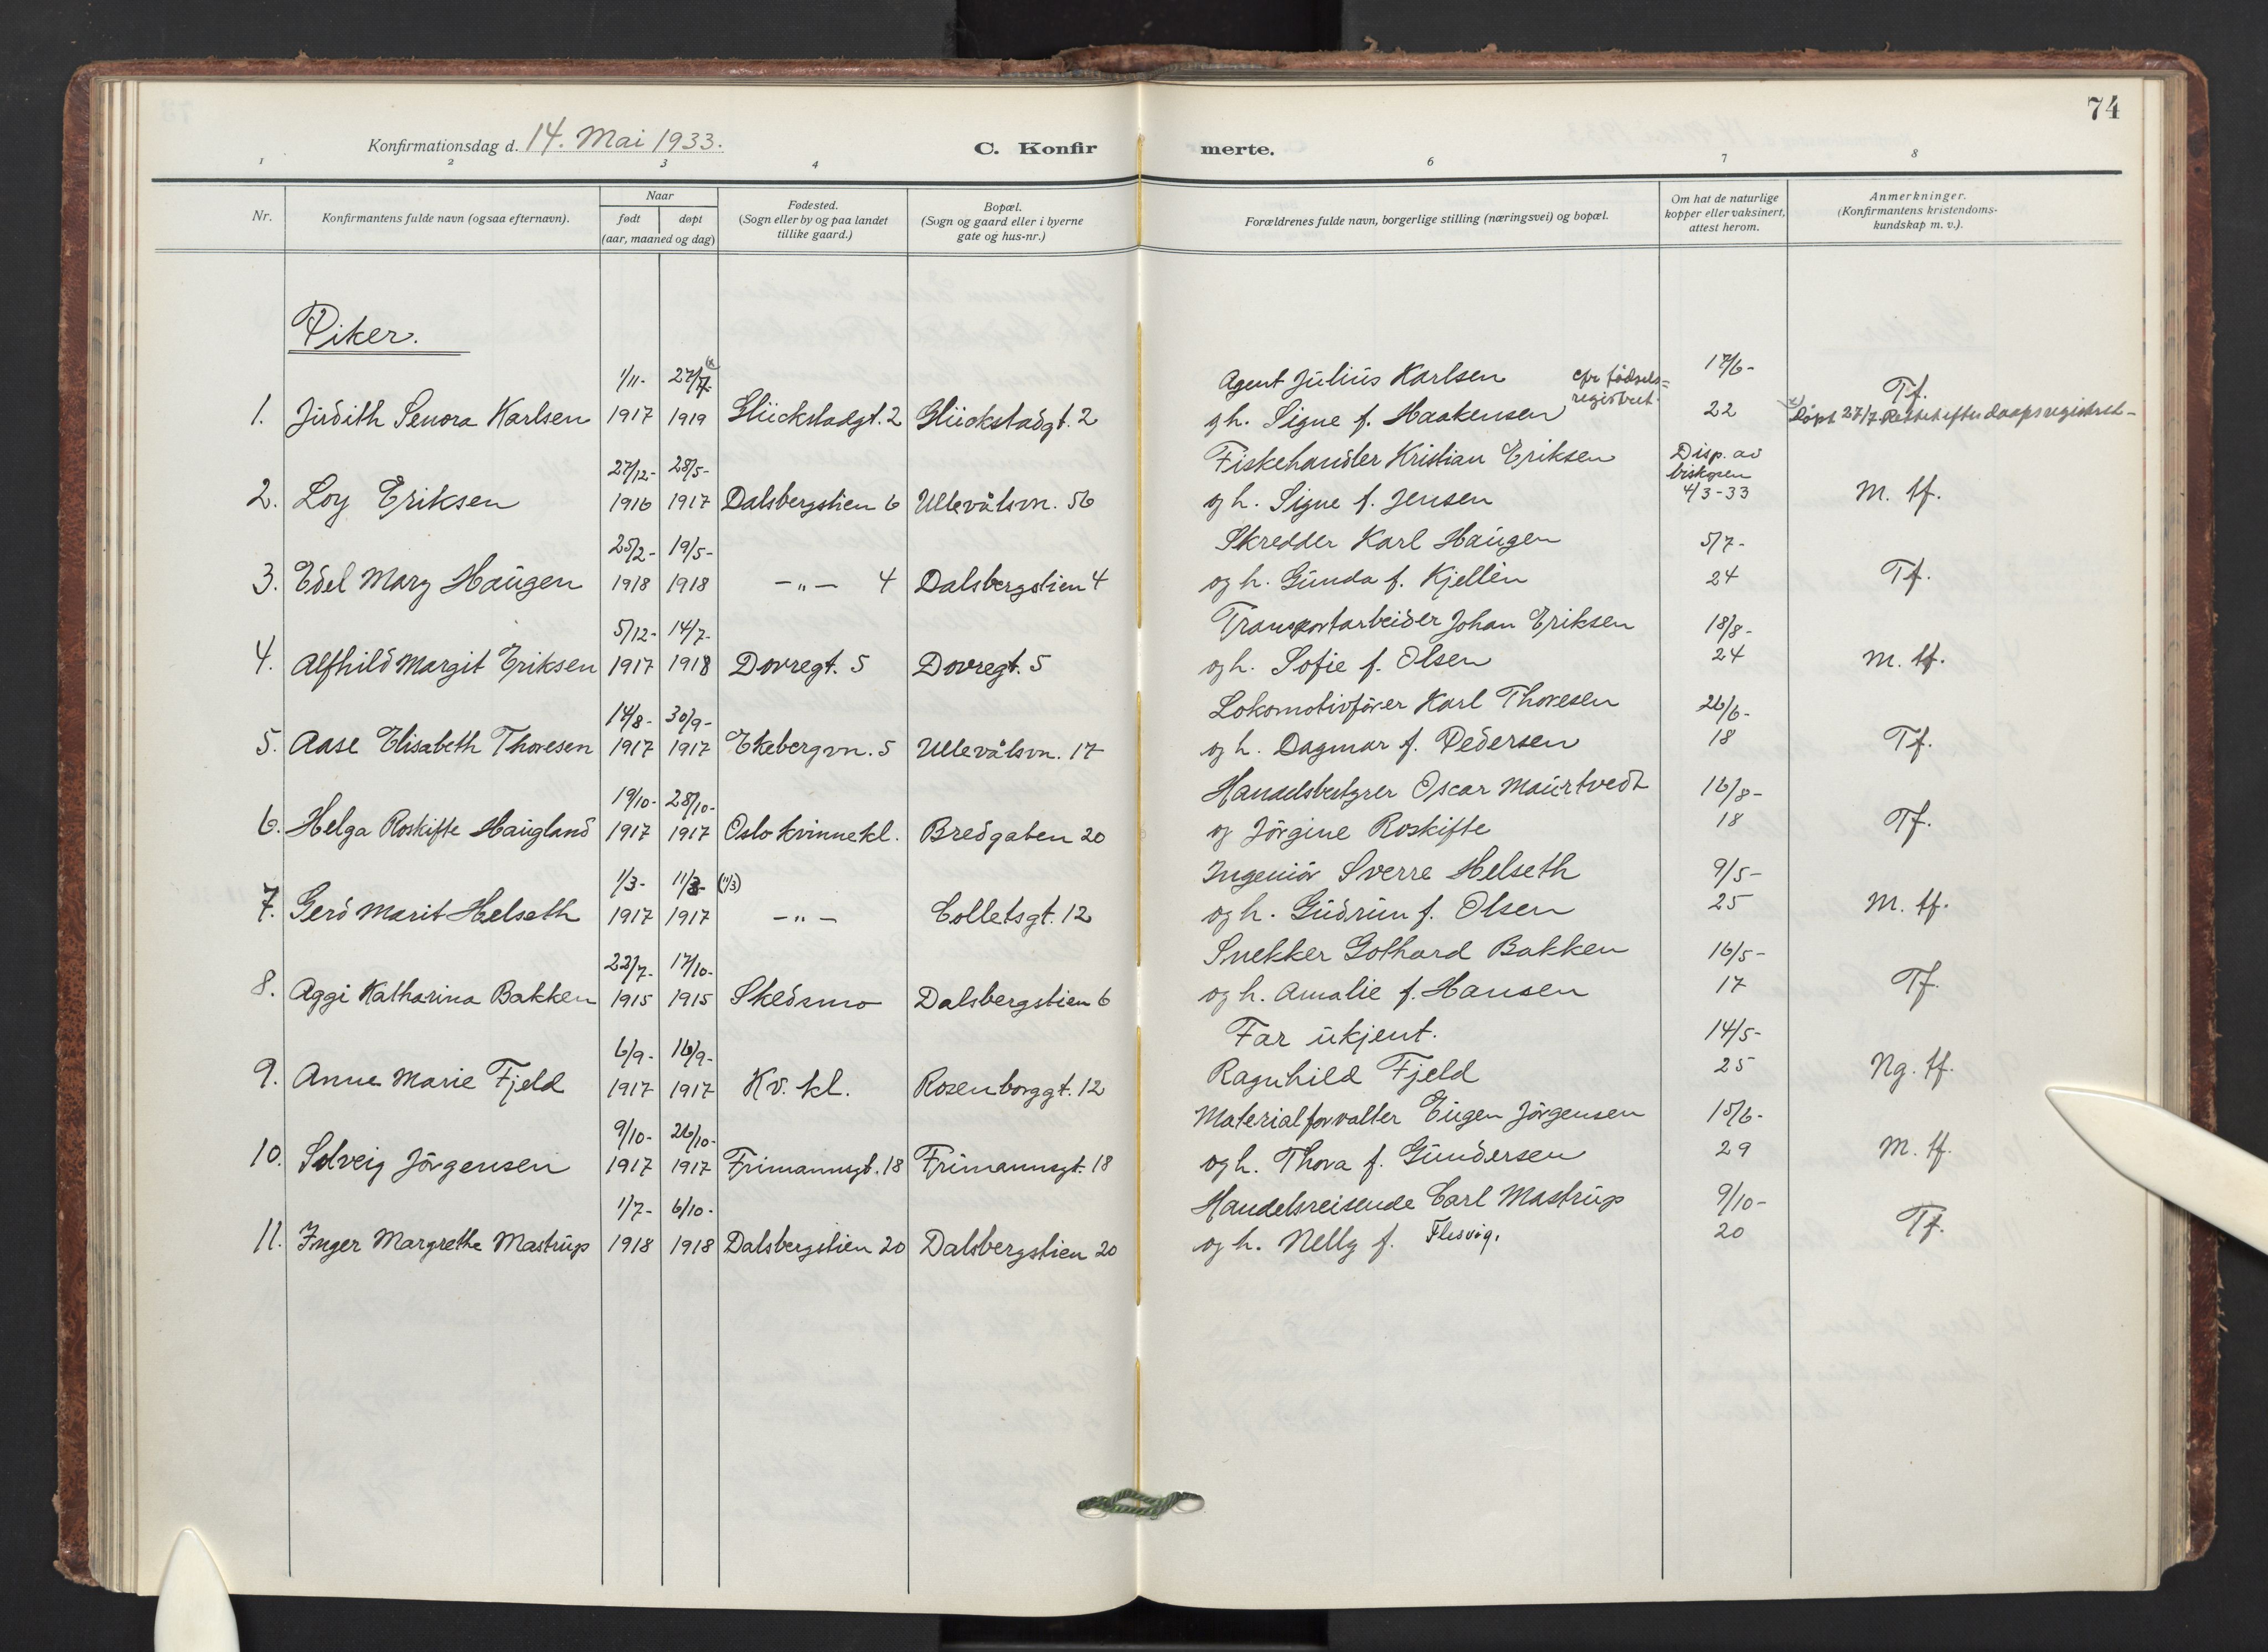 74
Konfirmationsdag d. 14. Mai 1933.
C. Konfir merte.
1 2 3 4 6 7 8
Nr.
Konfirmantens fulde navn (ogsaa efternavn).
Naar
født døpt
(aar, maaned og dag)
Fødested.
(Sogn eller by og paa landet
tillike gaard.)
Bopæl.
(Sogn og gaard eller i byerne
gate og hus-nr.)
Forældrenes fulde navn, borgerlige stilling (næringsvei) og bopæl.
Om hat de naturlige
kopper eller vaksinert,
attest herom.
Anmerkninger.
(Konfirmantens kristendoms-
kundskap m. v.).
Piker.
1/11- 27/7- x) Agent Julius Karlsen efr fødsels= 17/6- Tf.
registret.
1. Judith Senora Karlsen 1917 1919 Glückstadgt. 2 Glückstadgt. 2 og h. Signe f. Haakensen 22 x) Døpt 27/7. Rettet efter daapsregistret-
27/12- 28/5- Fiskehandler Kristian Eriksen Disp. av
biskopen
2. Loy Eriksen 1916 1917 Dalsbergstien 6 Ullevålsvn. 56 og h. Signe f. Jensen 4/3-33 M. tf.
25/2- 19/5- Skredder Karl Haugen 5/7-
3. Edel Mary Haugen 1918 1918 -"- 4 Dalsbergstien 4 og h. Gunda f. Kjellén 24 Tf.
5/12- 14/7- Transportarbeider Johan Eriksen 18/8-
4. Alfhild Margit Eriksen 1917 1918 Dovregt. 5 Dovregt. 5 og h. Sofie f. Olsen 24 M. tf.
14/8- 30/9- Lokomotivfører Karl Thoresen 26/6-
5. Aase Elisabeth Thoresen 1917 1917 Ekebergvn. 5 Ullevålsvn. 17 og h. Dagmar f. Pedersen 18 Tf.
19/10- 28/10- Handelsbestyrer Oscar Maurtvedt 16/8-
6. Helga Roskifte Haugland 1917 1917 Oslo kvinnekl. Bredgaten 20 og Jørgine Roskifte 18 Tf.
1/3- 11/3- (11/3) Ingeniør Sverre Helseth 9/5-
7. Gerd Marit Helseth 1917 1917 -"- Colletsgt. 12 og h. Gudrun f. Olsen 25 M. tf.
22/7- 17/10- Snekker Gothard Bakken 16/5-
8. Aggi Katharina Bakken 1915 1915 Skedsmo Dalsbergstien 6 og h. Amalie f. Hansen 17 Tf.
6/9- 16/9- Far ukjent. 14/5-
9. Anne Marie Fjeld 1917 1917 Kv. kl. Rosenborggt. 12 Ragnhild Fjeld 25 Ng. tf.
9/10- 26/10- Materialforvalter Eugen Jørgensen 15/6-
10. Solveig Jørgensen 1917 1917 Frimannsgt. 18 Frimannsgt. 18 og h. Thora f. Gundersen 29 M. tf.
1/7- 6/10- Handelsreisende Carl Mastrup 9/10-
11. Inger Margrethe Mastrup 1918 1918 Dalsbergstien 20 Dalsbergstien 20 og h. Nelly f. Flesvig. 20 Tf.